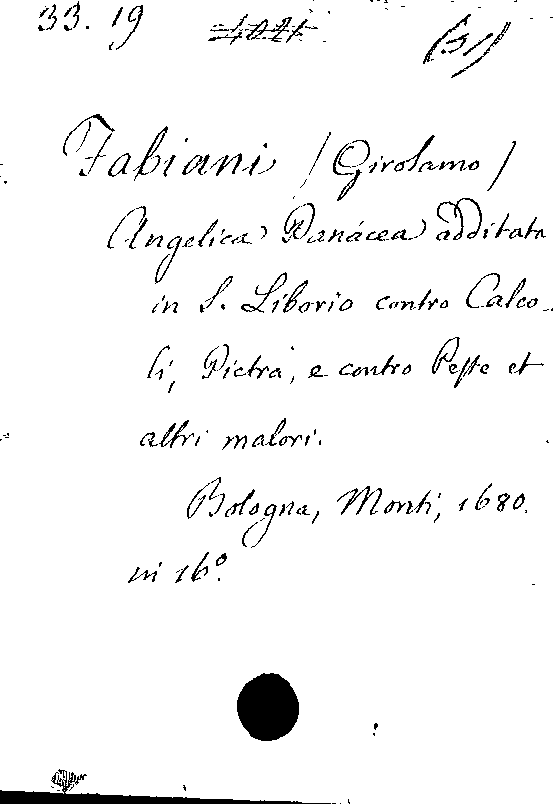 33. 19 4021 (31)
Fabiani (Girolamo)
Angelica Panácea additata
in S. Liborio contro Calco-
li, Pietra, e contro Peste et
altri malori.
Bologna, Monti, 1680.
in 16º.